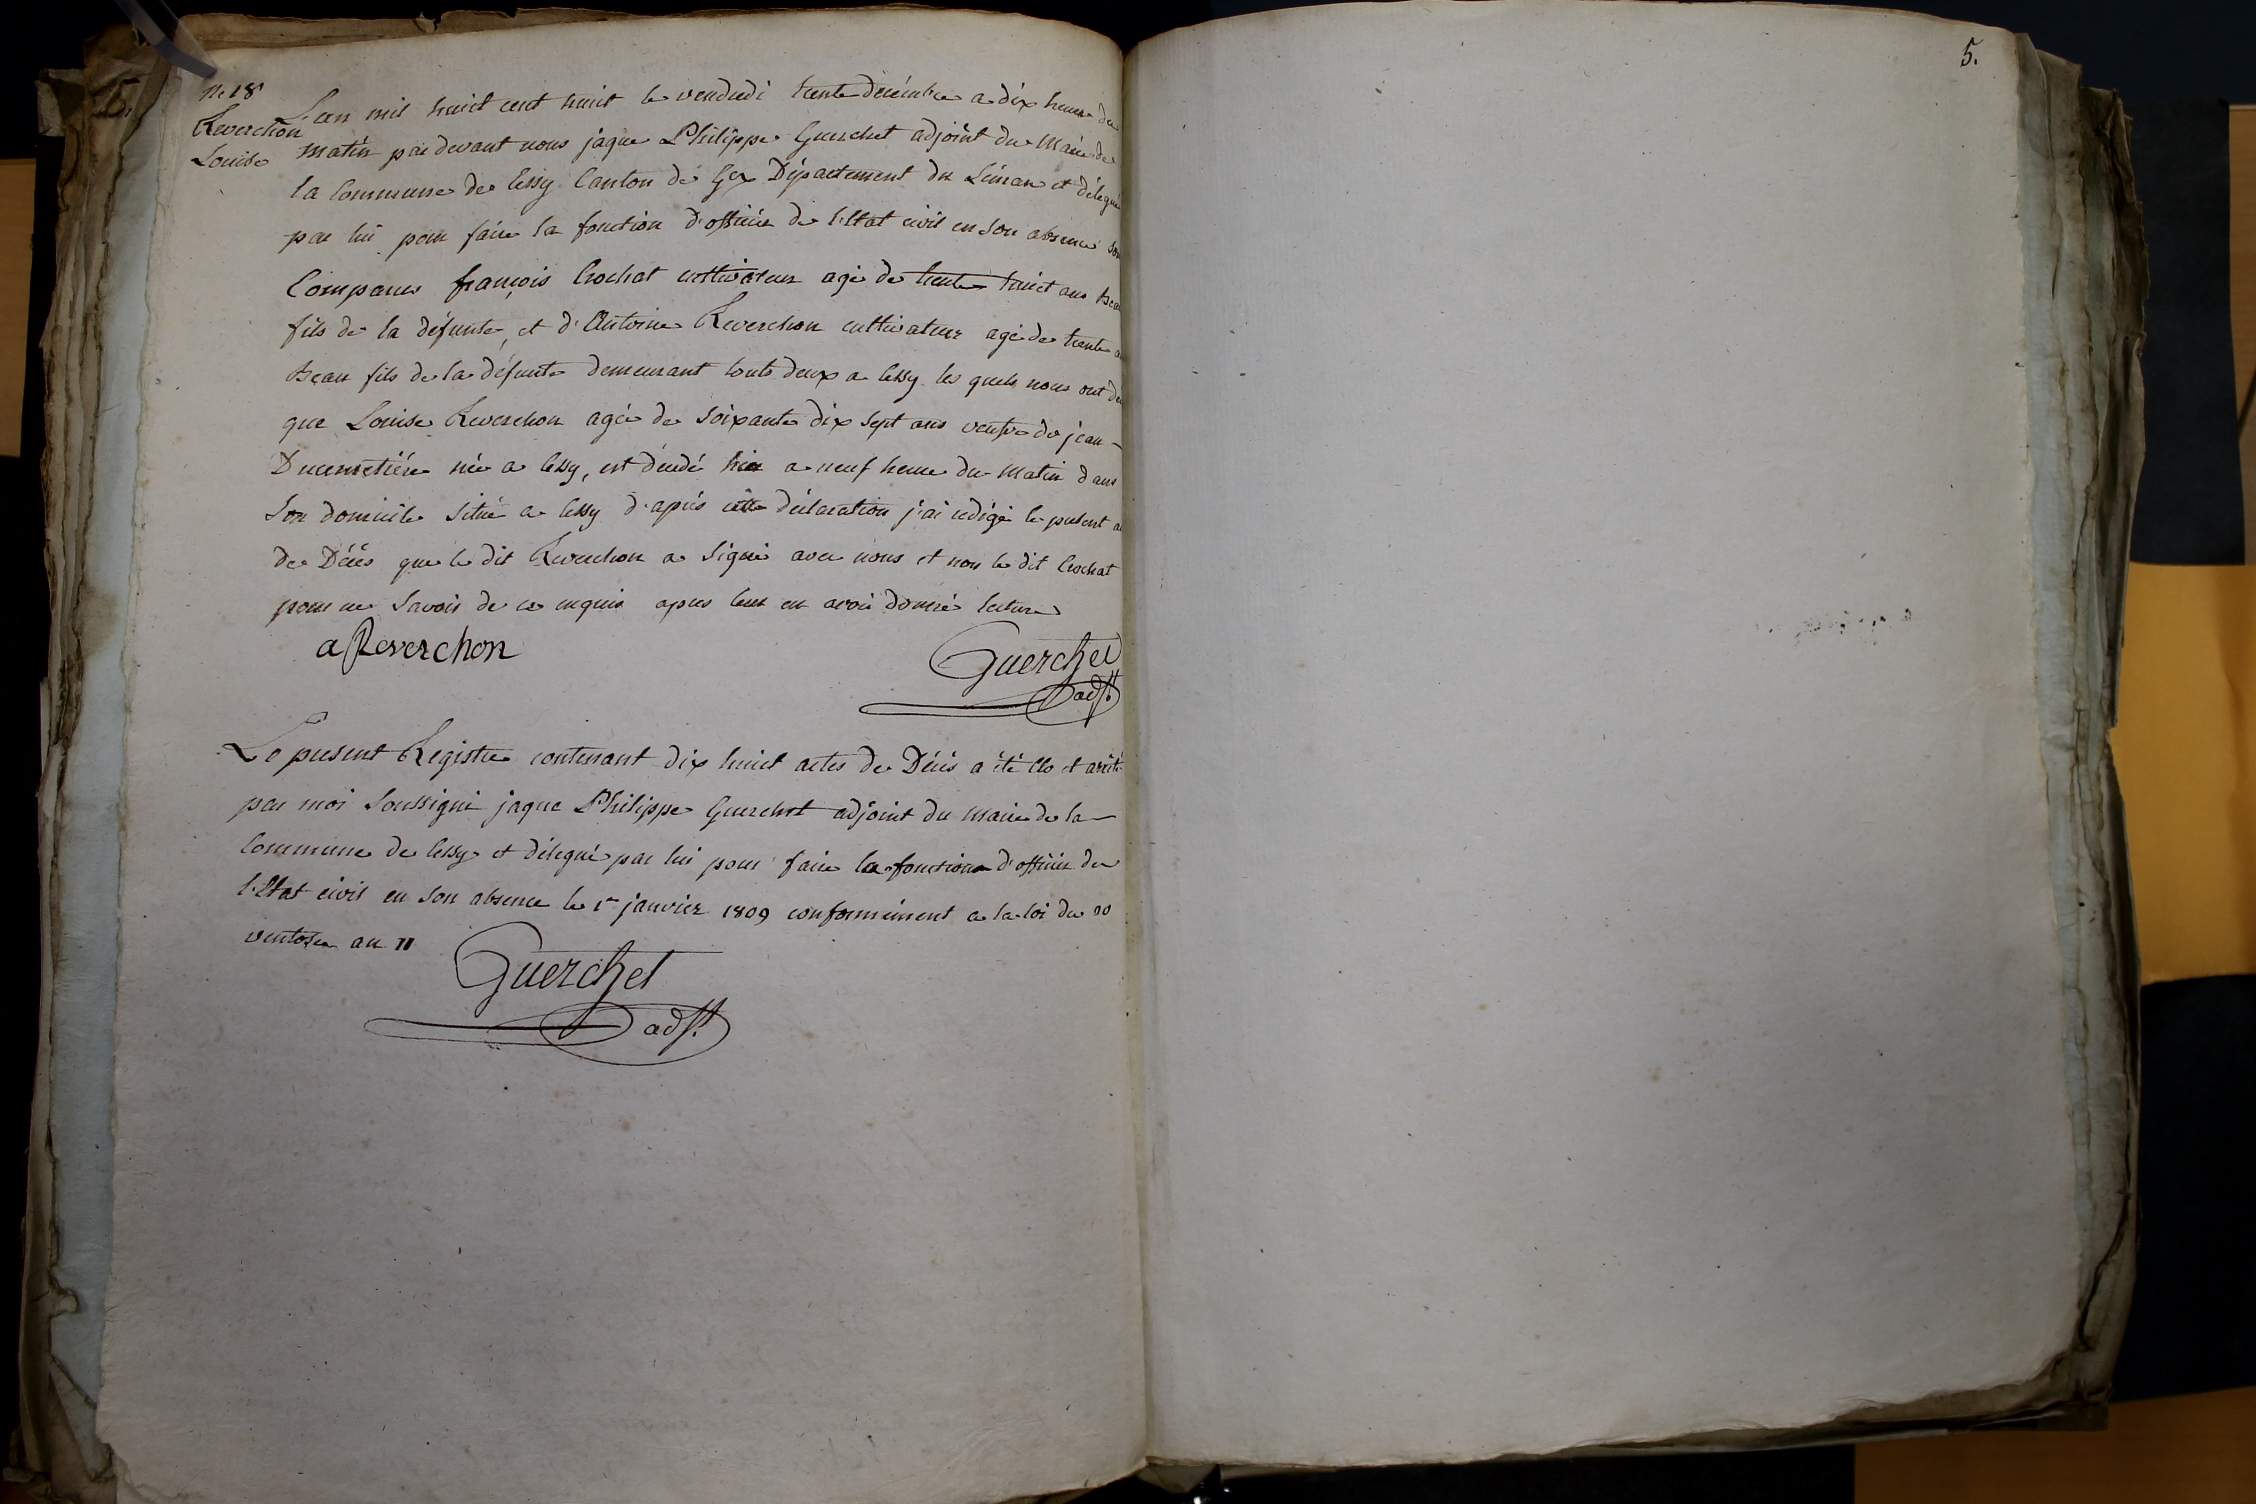 N. 18
Reverchon
Louise
L'an mil huict cent huict le vendredi trente décémbre a dix heure du
matin par devant nous jâque Philippe Guerchet adjoint du Maire de
la Commune de Cessy Canton de Gex Département du Léman et délegué
par lui pour faire la fonction d'officier de l'Etat civil en son absence sont
Comparus françois Crochat cultivateur agé de trente huict ans beau
fils de la défunte, et d'Antoine Reverchon cultivateur agé de trente
beau fils de la défunte demeurant touts deux a Cessy les quels nous ont
que Louise Reverchon agée de soixante dix sept ans veufve de jean
Ducemetiére née a Cessy, est décédé hier a neuf heure du matin dans
son domicile situé a Cessy d'après cette déclaration j'ai redigé le présent
de Décés que le dit Reverchon a signé avec nous et non le dit Crochat
pour ne savoir de ce enquis apres leur en avoir donné lecture
a Reverchon
Guerchet
adjt.
Le présent Registre contenant dix huict actes de Décés a été clo et arrêté
par moi soussigné jaque Philippe Guerchet adjoint du Maire de la
Commune de Cessy et délegué par lui pour faire la fonction d'officier de
l'Etat civil en son absence le 1er janvier 1809 conformément a la loi du 20
ventose an 11
Guerchet
adjt.
5.